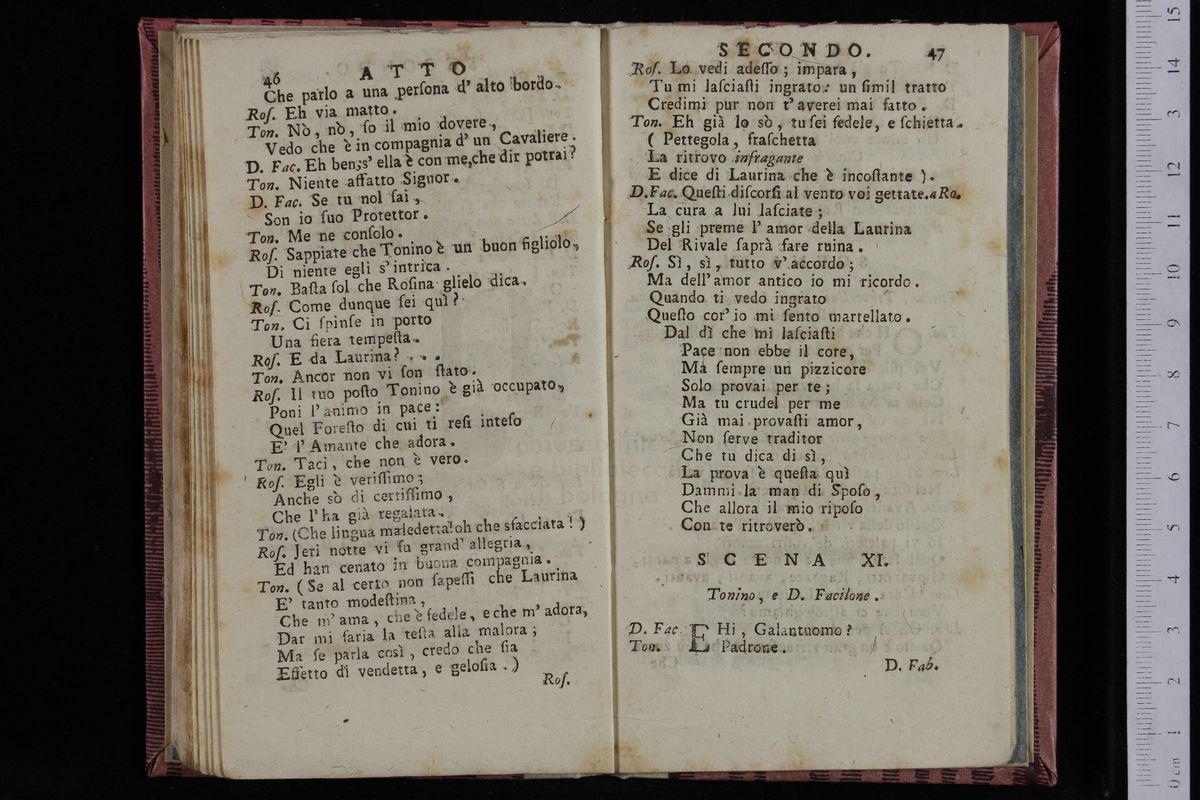 46 ATTO
Che parlo a una perſona d' alto bordo.
Roſ. Eh via matto.
Ton. Nò, nò, ſo il mio dovere,
Vedo che è in compagnia d' un Cavaliere.
D. Fac. Eh ben, s' ella è con me, che dir potrai?
Ton. Niente affatto Signor.
D. Fac. Se tu nol ſai,
Son io ſuo Protettor.
Ton. Me ne conſolo.
Roſ. Sappiate che Tonino è un buon figliolo,
Di niente egli s' intrica.
Ton. Baſta ſol che Roſina glielo dica.
Roſ. Come dunque ſei quì?
Ton. Ci ſpinſe in porto
Una fiera tempeſta.
Roſ. E da Laurina? . . .
Ton. Ancor non vi ſon ſtato.
Roſ. Il tuo poſto Tonino è già occupato,
Poni l' animo in pace:
Quel Foreſto di cui ti reſi inteſo
E' l' Amante che adora.
Ton. Taci, che non è vero.
Roſ. Egli è veriſſimo;
Anche sò di certiſſimo,
Che l' ha già regalata.
Ton. (Che lingua maledetta! oh che sfacciata! )
Roſ. Jeri notte vi fu grand' allegria,
Ed han cenato in buona compagnia.
Ton. ( Se al certo non ſapeſſi che Laurina
E' tanto modeſtina,
Che m' ama, che è fedele, e che m' adora,
Dar mi faria la teſta alla malora;
Ma ſe parla così, credo che ſia
Effetto di vendetta, e geloſia. )
Roſ.
SECONDO. 47
Roſ. Lo vedi adeſſo; impara,
Tu mi laſciaſti ingrato: un ſimil tratto
Credimi pur non t' averei mai fatto.
Ton. Eh già lo sò, tu ſei fedele, e ſchietta.
( Pettegola, fraſchetta
La ritrovo infragante
E dice di Laurina che è incoſtante ).
D. Fac. Queſti diſcorſi al vento voi gettate. a Ro.
La cura a lui laſciate;
Se gli preme l' amor della Laurina
Del Rivale ſaprà fare ruina.
Roſ. Sì, sì, tutto v' accordo;
Ma dell' amor antico io mi ricordo.
Quando ti vedo ingrato
Queſto cor' io mi ſento martellato.
Dal dì che mi laſciaſti
Pace non ebbe il core,
Ma ſempre un pizzicore
Solo provai per te;
Ma tu crudel per me
Già mai provaſti amor,
Non ſerve traditor
Che tu dica di sì,
La prova è queſta quì
Dammi la man di Spoſo,
Che allora il mio ripoſo
Con te ritroverò.
SCENA XI.
Tonino, e D. Facilone.
D. Fac. EHi, Galantuomo?
Ton. Padrone.
D. Fab.
0 cm 1 2 3 4 5 6 7 8 9 10 11 12 13 14 15